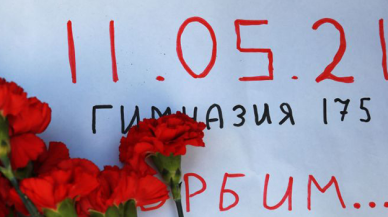 11.05.21
ГИМНАЗИЯ 175
РБИМ...